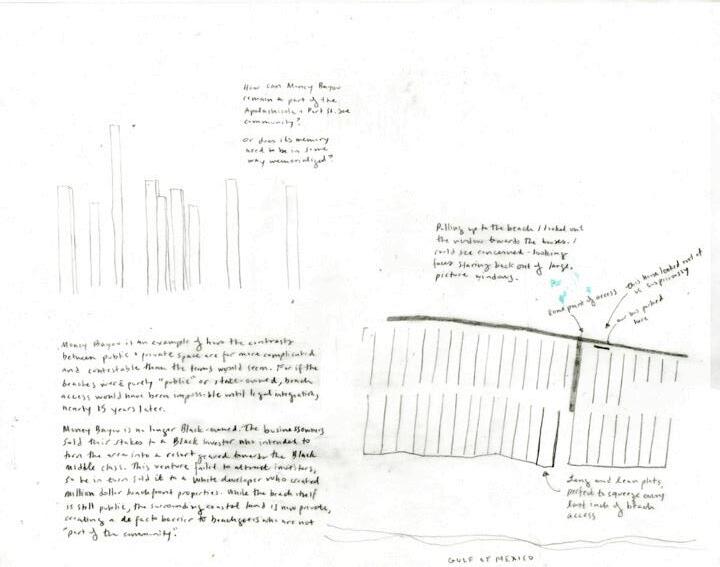 How can Money Bayou
remain a part of the
Apalachicola + Port St. Joe
community?
Or does its memory
need to be in some
way memorialized?
Pulling up to the beach I looked out
the window towards the houses. I
could see concerned-looking
faces staring back out of large,
picture windows.
point of access
this house looked out at
us suspiciously
our bus parked
here
Money Bayou is an example of how the contrasts
between public + private space are far more complicated
and contestable than the terms would seem. For if the
beaches were purely "public" or state-owned, beach
access would have been impossible until legal integration,
nearly 15 years later.
Money Bayou is no longer Black-owned. The businessowners
sold their stakes to a Black investor who intended to
turn the area into a resort geared towards the Black
middle class. This venture failed to attract investors,
so he in turn sold it to a white developer who created
million dollar beachfront properties. While the beach itself
is still public, the surrounding coastal land is now private,
creating a de facto barrier to beachgoers who are not
"part of the community".
Long and lean plots,
perfect to squeeze every
last inch of beach
access
GULF OF MEXICO